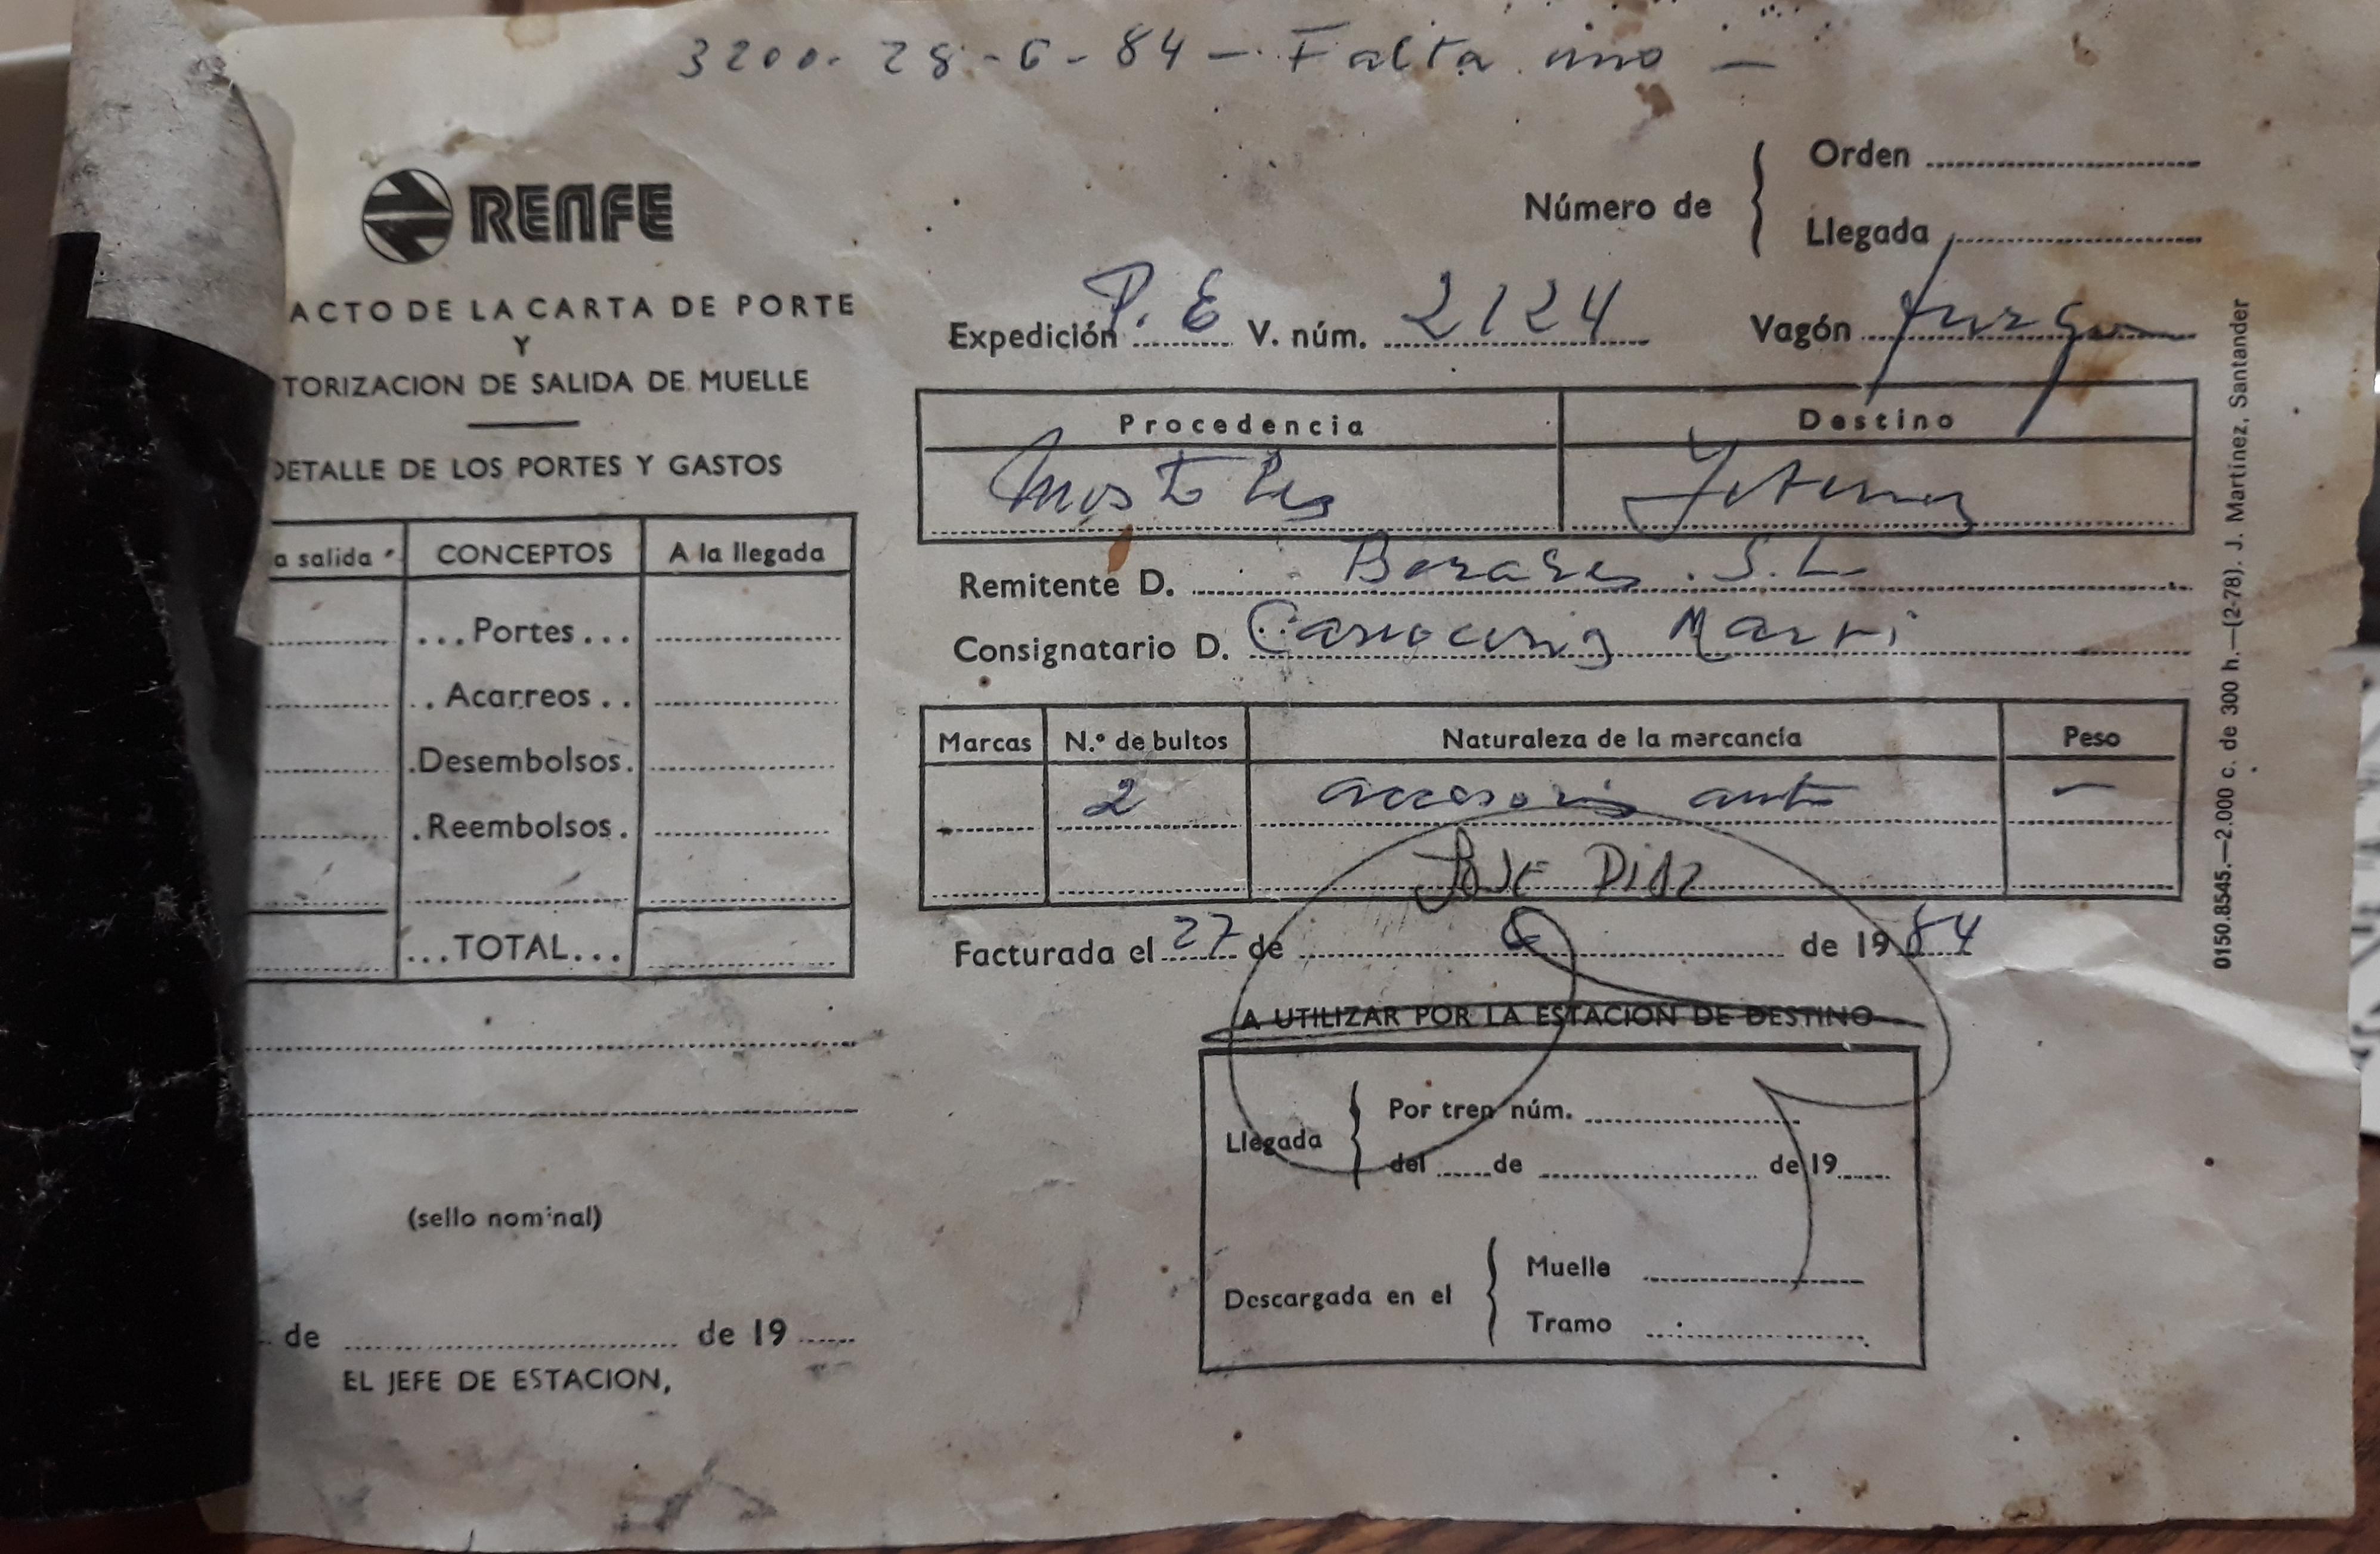 3200. 28-6-84 — Falta uno —
RENFE
ACTO DE LA CARTA DE PORTE
Y
TORIZACION DE SALIDA DE MUELLE
DETALLE DE LOS PORTES Y GASTOS
a salida CONCEPTOS A la llegada
...Portes...
..Acarreos..
.Desembolsos.
.Reembolsos.
...TOTAL...
(sello nominal)
de de 19
EL JEFE DE ESTACION,
Número de Orden
Llegada
Expedición P. E V. núm. 2124 Vagón furgon
Procedencia Destino
Mostoles
Remitente D. S.L
Consignatario D. Carroceria Marri
Marcas N.º de bultos Naturaleza de la mercancía Peso
2 accesorios auto —
JOSE DIAZ
Facturada el 27 de 6 de 1984
A UTILIZAR POR LA ESTACION DE DESTINO
Llegada Por tren núm.
del de de 19
Descargada en el Muelle
Tramo
0150.8545.—2.000 c. de 300 h.—(2-78). J. Martínez, Santander